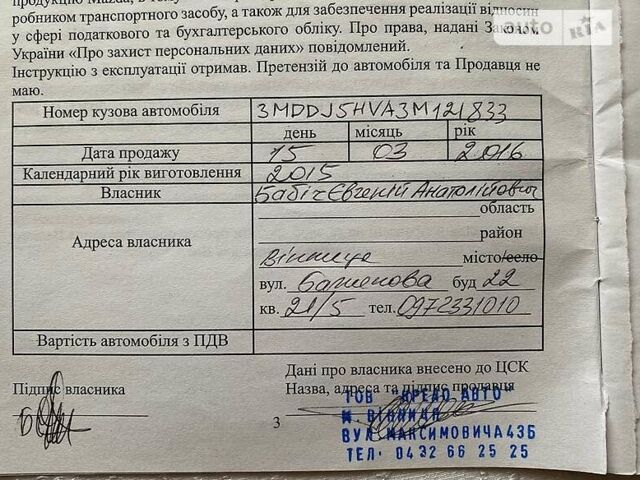 продукцію Mazda, в тому
робником транспортного засобу, а також для забезпечення реалізації відносин
у сфері податкового та бухгалтерського обліку. Про права, надані Законом
України «Про захист персональних даних» повідомлений.
Інструкцію з експлуатації отримав. Претензій до автомобіля та Продавця не
маю.
auto RIA
Номер кузова автомобіля 3MDDJ5HVA3M121833
день місяць рік
Дата продажу 15 03 2016
Календарний рік виготовлення 2015
Власник Бабіч Євгеній Анатолійович
область
район
Адреса власника
Вінниця місто/село
вул. Баженова буд 22
кв. 21/5 тел. 0972331010
Вартість автомобіля з ПДВ
Дані про власника внесено до ЦСК
Підпис власника Назва, адреса та підпис продавця
ТОВ "КРЕДО АВТО"
М ВІННИЦЯ
ВУЛ МАКСИМОВИЧА 43Б
ТЕЛ. 0432 66 25 25
3